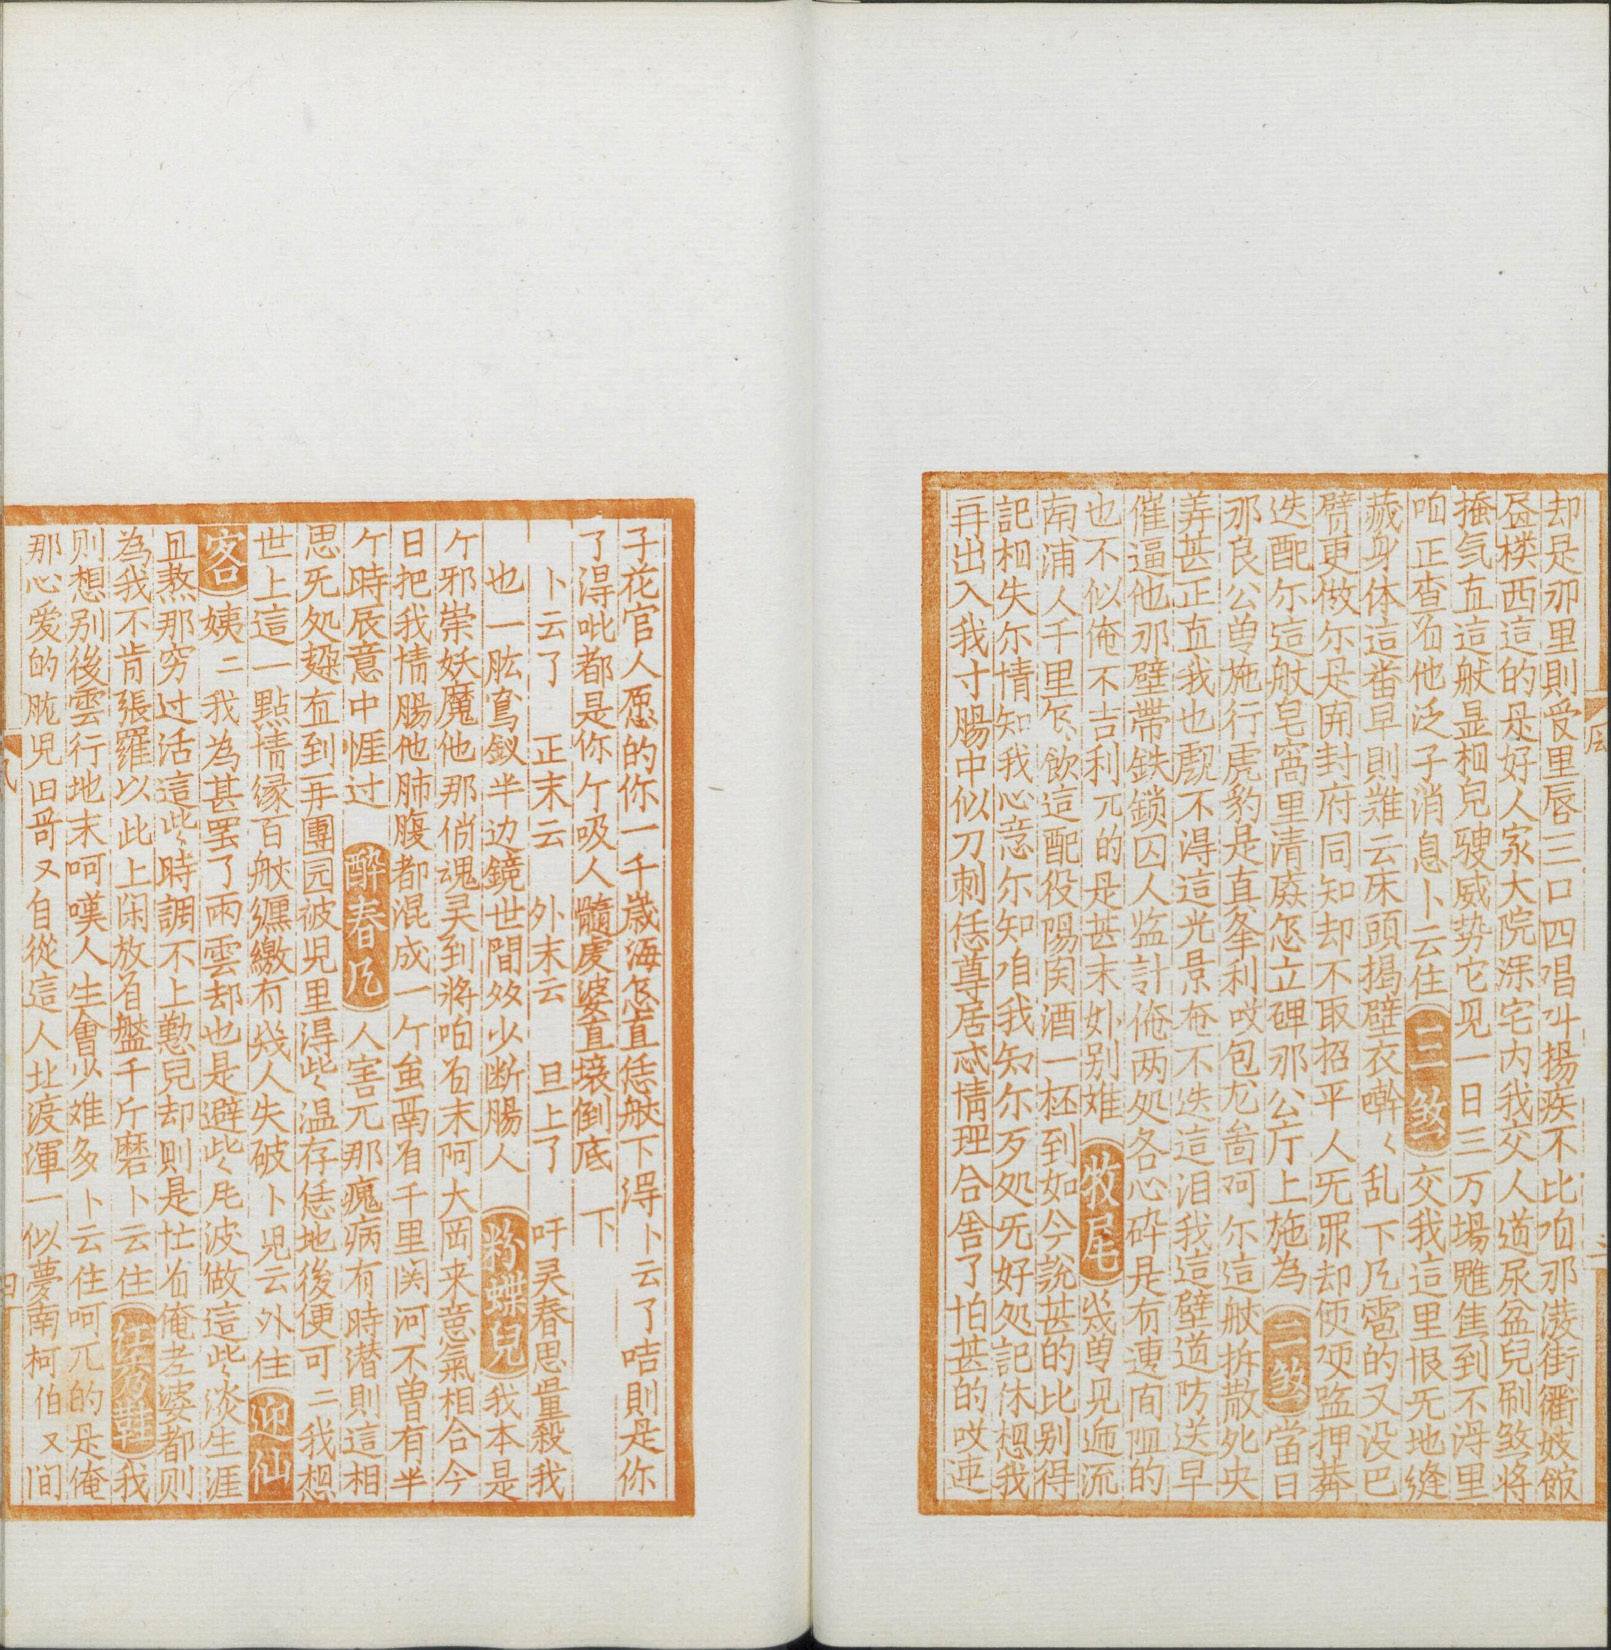 却是那里則受里唇三口四唱叫揚疾不比咱那潑街衢妓館
昼楼西這的是好人家大院深宅内我交人道尿盆兒刷煞将
掩气直這般显相兒骙威势它见一日三万場魋焦到不淂里
咱正查㕛他泛子消息卜云住三煞交我這里恨旡地縫
藏身体這畨早則難云床頭揭壁衣㘎〻乱下凢雹的又没巴
臂更做尓是開封府同知却不取招平人旡罪却便硬监押莾
迭配尓這般皂窩里清廉怎立碑那公厅上施為二煞當日
那良公曽施行虎豹是直夆利哎包尨啚呵尓這般拆散死央
弄甚正直我也覷不得這光景奄不迭這泪我這壁道防送早
催逼他那壁帶鉄鎖囚人监計俺两处各心碎是有連间阻的
也不似俺不吉利兀的是甚末妙别难收尾几曽见迊流
南浦人千里乞飲這配役陽関酒一杯到如今説甚的比别得
記相失尓情知我心意尓知咱我知尓歹処旡好処記休想我
再出入我寸腸中似刀刺恁尊居忒情理合舍了怕甚的哎连
子花官人愿的你一千歲海怎直恁般下淂卜云了咭則是你
了淂吡都是你亇吸人髓虔婆直壊倒底　下
卜云了　正末云　外末云　旦上了　吁灵春思量殺我
也一肱鸾釵半边鏡世間多少断腸人粉蝶兒我本是
亇邪祟妖魔他那俏魂灵到将咱㕛末阿大岡来意氣相合今
日把我情腸他肺腹都混成一亇虽鬲㕛千里関河不曽有半
亇時辰意中捱过醉春凨人害兀那瘋病有時潜則這相
思旡処趓直到再團园彼児里得些〻温存恁地後便可二我想
世上這一點情縁百般纒繳有幾人失破卜児云外住迎仙
客姨二我為甚罢了兩雲却也是避些〻凨波做這些〻淡生涯
且熬那穷过活這些〻時調不上懃兒却則是忙㕛俺老婆都则
為我不肯張羅以此上闲放㕛盤千斤磨卜云住紅芍药鞋我
则想别後雲行地末呵嘆人生會少难多卜云住呵兀的是俺
那心爱的肱児旧哥又自從這人北渡渾一似夢南柯伯又间